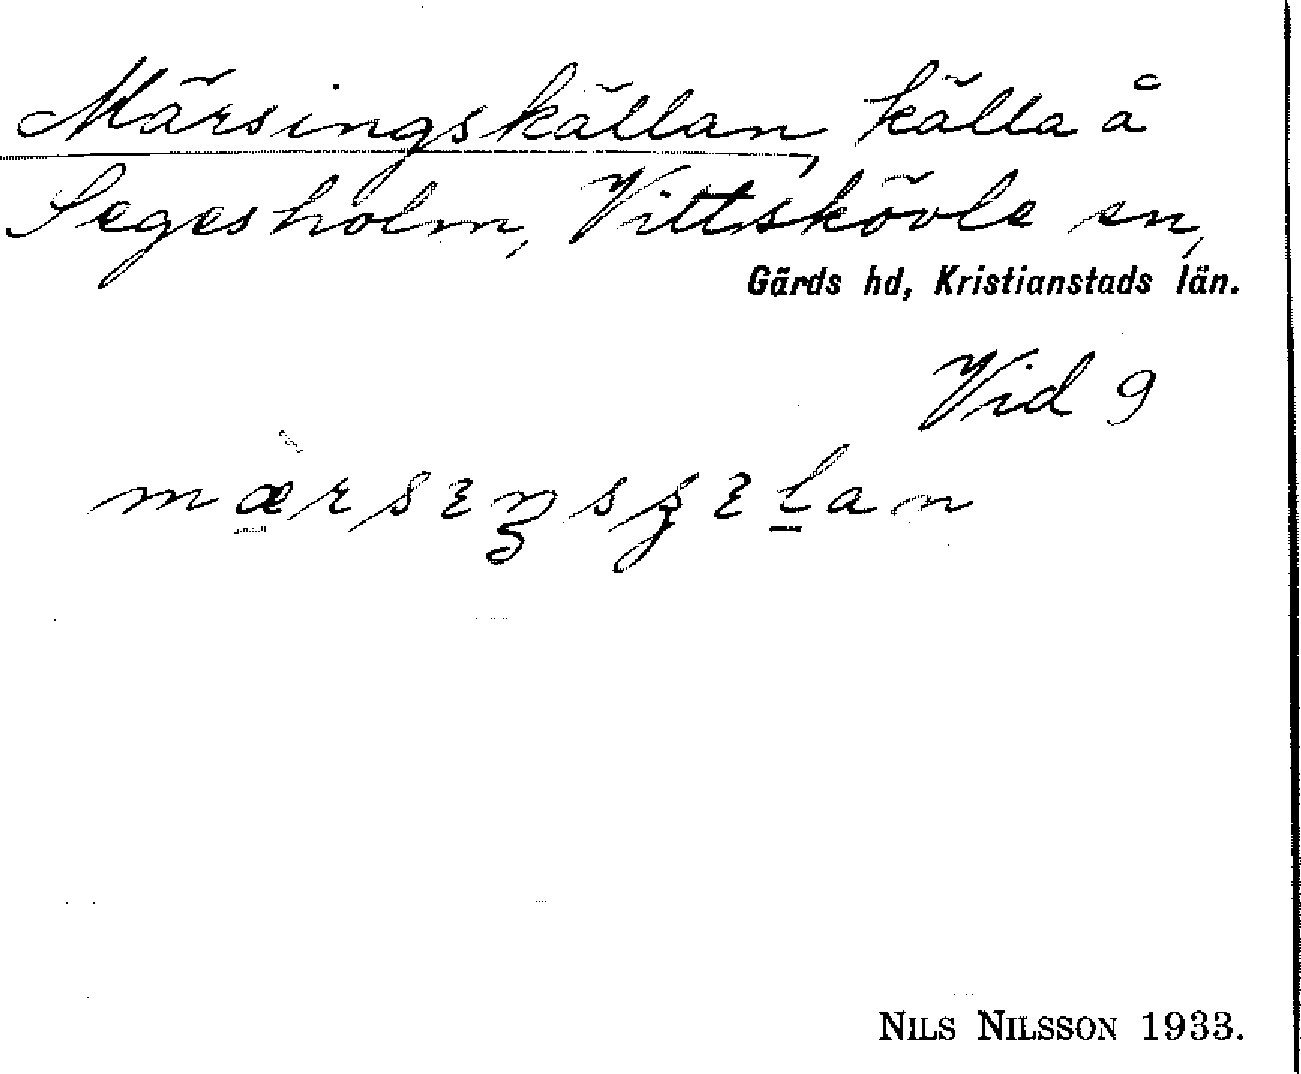 Märsingskällan, källa å
Segesholm, Vittskövle sn,
Gärds hd, Kristianstads län.
Vid 9
mærsɛŋsʂɛlan
NILS NILSSON 1933.